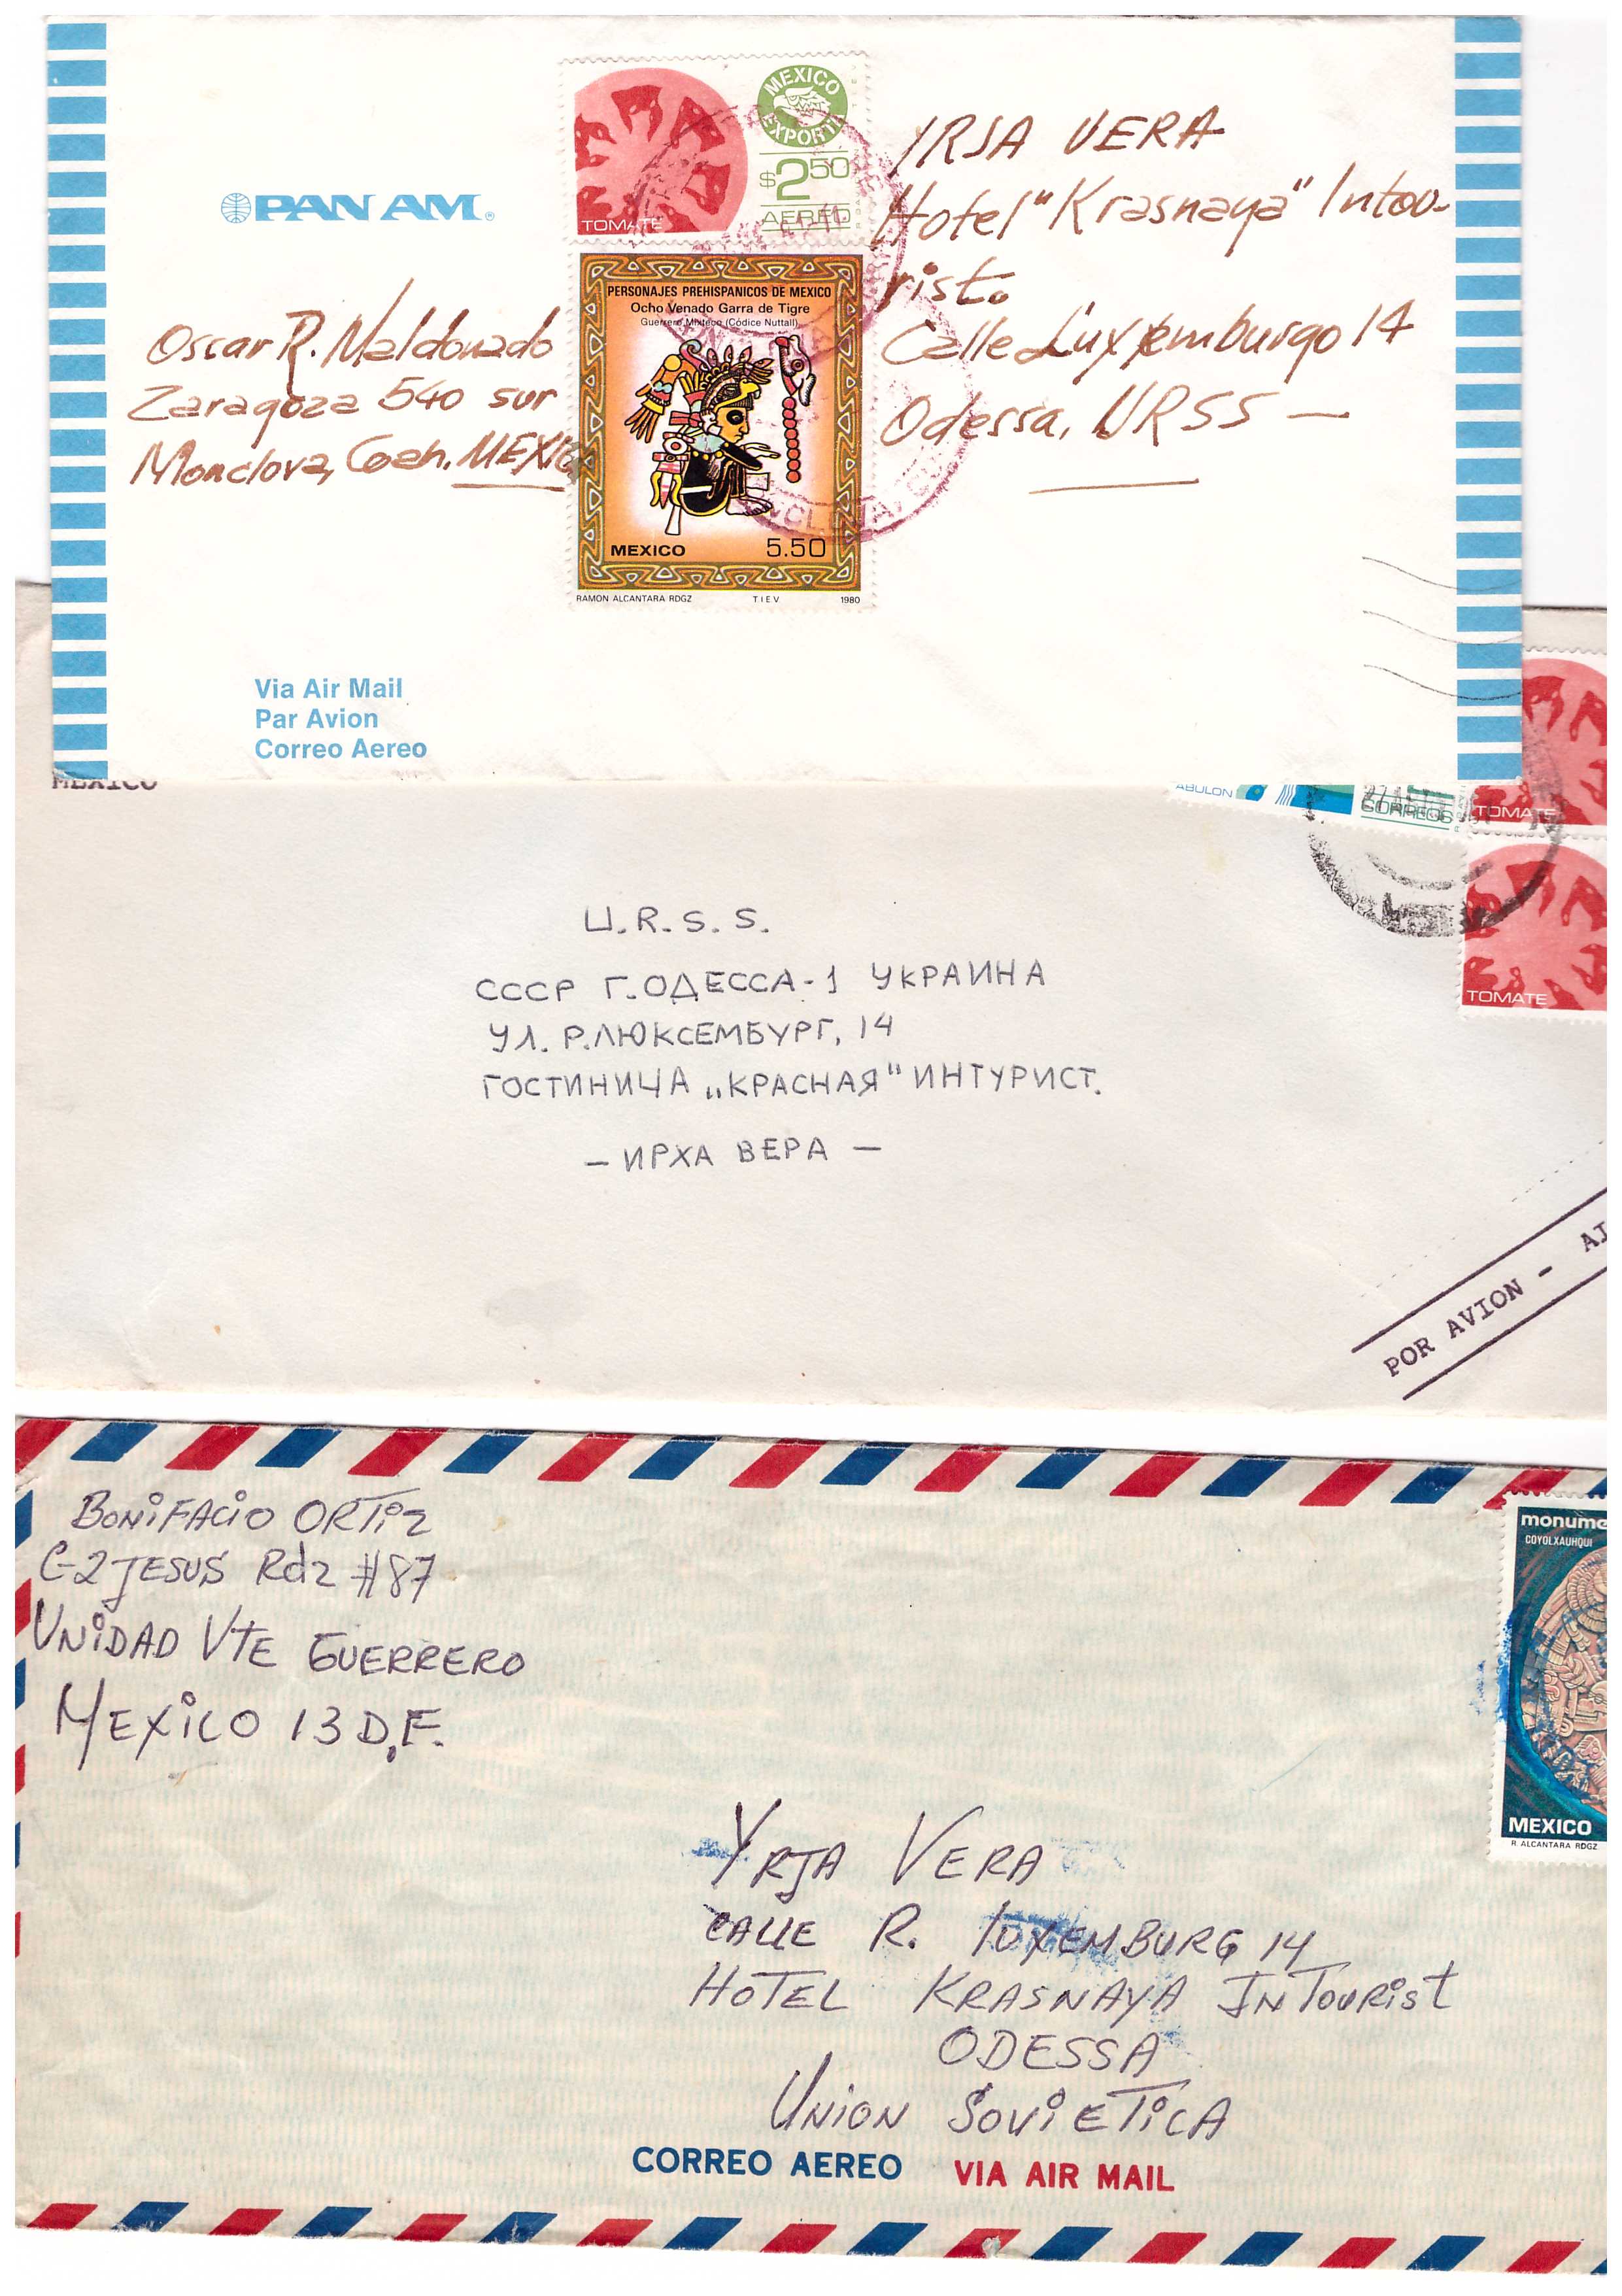 PAN AM
TOMATE
MEXICO
EXPORTA
$2.50
AEREO
PERSONAJES PREHISPANICOS DE MEXICO
Ocho Venado Garra de Tigre
Guerrero Mixteco (Códice Nuttall)
MEXICO 5.50
RAMON ALCANTARA RDGZ T.I.E.V. 1980
IRJA VERA
Hotel "Krasnaya" Intou-
rist.
Calle Luxemburgo 14
Odessa, URSS —
Oscar R. Maldonado
Zaragoza 540 sur
Monclova, Coah. MEXICO
Via Air Mail
Par Avion
Correo Aereo
MEXICO
ABULON
CORREOS
TOMATE
TOMATE
U.R.S.S.
СССР Г.ОДЕССА-1 УКРАИНА
УЛ. Р.ЛЮКСЕМБУРГ, 14
ГОСТИНИЧА „КРАСНАЯ" ИНТУРИСТ.
— ИРХА ВЕРА —
POR AVION - AI
BONIFACIO ORTIZ
C-2 JESUS Rdz #87
UNIDAD VTE GUERRERO
MEXICO 13 D.F.
monume
COYOLXAUHQUI
MEXICO
R. ALCANTARA RDGZ
YRJA VERA
CALLE R. LUXEMBURG 14
HOTEL KRASNAYA INTOURIST
ODESSA
UNION SOVIETICA
CORREO AEREO VIA AIR MAIL